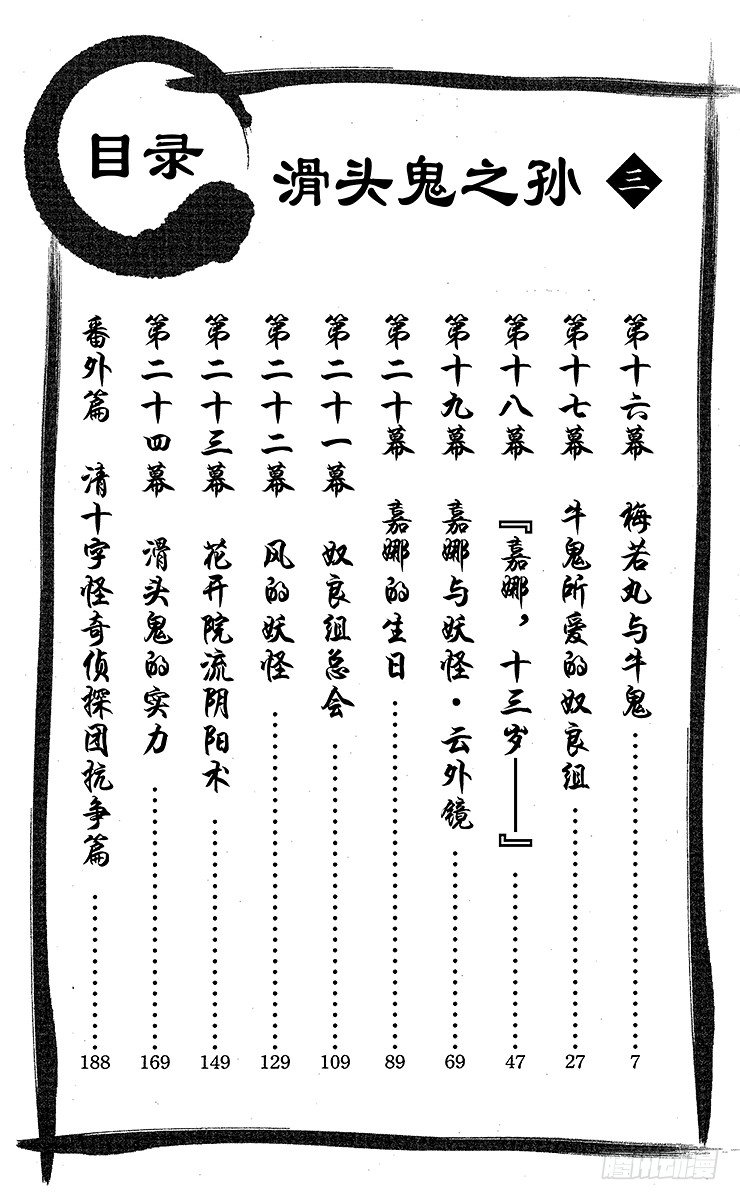 目录
滑头鬼之孙 三
第十六幕 梅若丸与牛鬼……7
第十七幕 牛鬼所爱的奴良组……27
第十八幕 『嘉娜，十三岁——』……47
第十九幕 嘉娜与妖怪·云外镜……69
第二十幕 嘉娜的生日……89
第二十一幕 奴良组总会……109
第二十二幕 风的妖怪……129
第二十三幕 花开院流阴阳术……149
第二十四幕 滑头鬼的实力……169
番外篇 清十字怪奇侦探团抗争篇……188
腾讯动漫